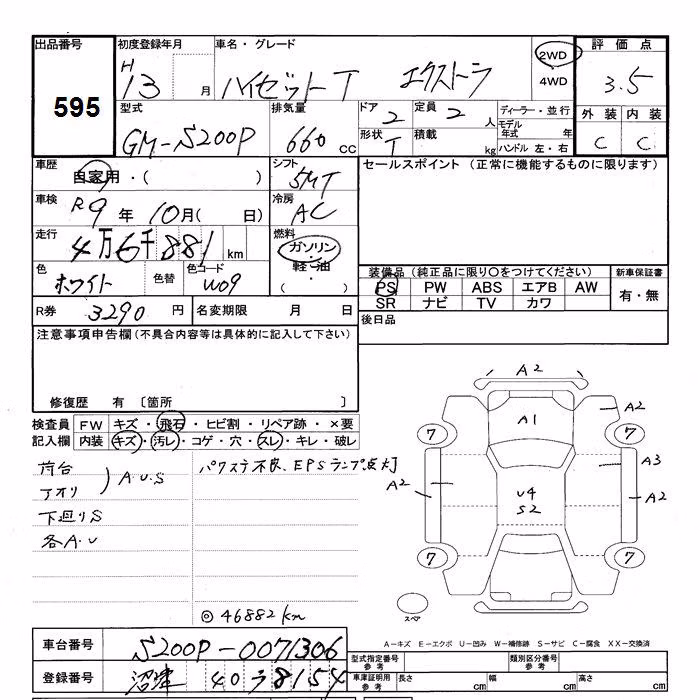 出品番号 初度登録年月 車名・グレード 2WD 評価点
595 H 13 月 ハイゼットT エクストラ 4WD 3.5
型式 排気量 ドア 2 定員 2 人 ディーラー・並行 外装 内装
GM-S200P 660 cc 形状 T 積載 kg モデル年式 年 C C
ハンドル 左・右
車歴 自家用・( ) シフト 5MT セールスポイント (正常に機能するものに限ります)
車検 R9 年 10月( 日) 冷房 AC
走行 4万6千881 km 燃料 ガソリン・軽油 ( )
色 ホワイト 色替 色コード W09 装備品 (純正品に限り○をつけてください) 新車保証書
PS PW ABS エアB AW 有・無
SR ナビ TV カワ
R券 3290 円 名変期限 月 日 後日品
注意事項申告欄(不具合内容等は具体的に記入して下さい)
修復歴 有 〔箇所 〕
検査員 FW キズ・飛石・ヒビ割・リペア跡・×要
記入欄 内装 キズ・汚レ・コゲ・穴・スレ・キレ・破レ
荷台
アオリ ) A.U.S
下廻りS
各A.U
パワステ不良、EPSランプ点灯
◎46882km
A2
A1 A2
7 7
A2 A3
U4 A2
S2
7 7
スペア
A-キズ E-エクボ U-凹み W-補修跡 S-サビ C-腐食 XX-交換済
車台番号 S200P-0071306 型式指定番号 参考 類別区分番号 参考
登録番号 沼津 40 ろ 8154 車庫証明用 参考 長さ cm 幅 cm 高さ cm